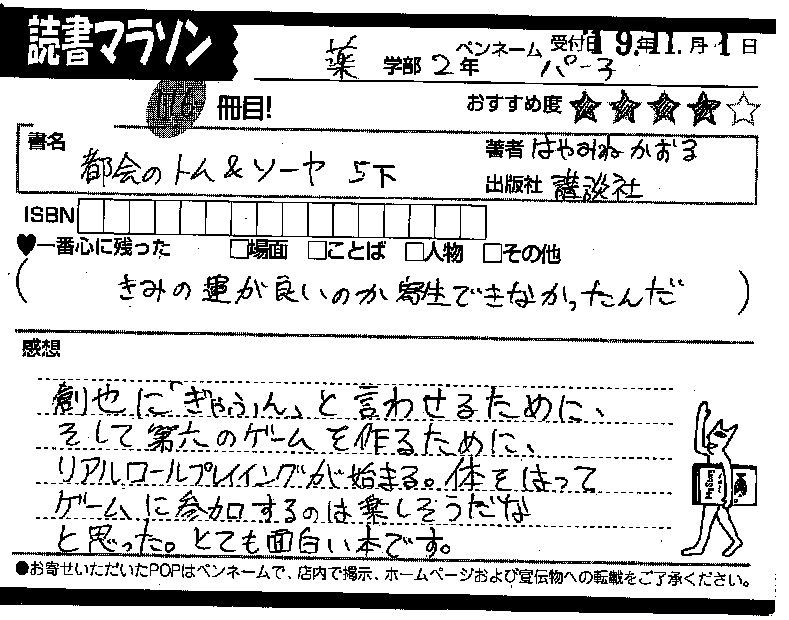 読書マラソン
受付日 19.年11.月1日
薬 学部 2年 ペンネーム パー子
116 冊目!
おすすめ度 ★★★★☆
書名 都会のトム&ソーヤ 5下
著者 はやみね かおる
出版社 講談社
ISBN
♥一番心に残った □場面 □ことば □人物 □その他
( きみの運が良いのか寄生できなかったんだ )
感想
創也に「ぎゃふん」と言わせるために、
そして第六のゲームを作るために、
リアルロールプレイイングが始まる。体をはって
ゲームに参加するのは楽しそうだな
と思った。とても面白い本です。
●お寄せいただいたPOPはペンネームで、店内で掲示、ホームページおよび宣伝物への転載をご了承ください。